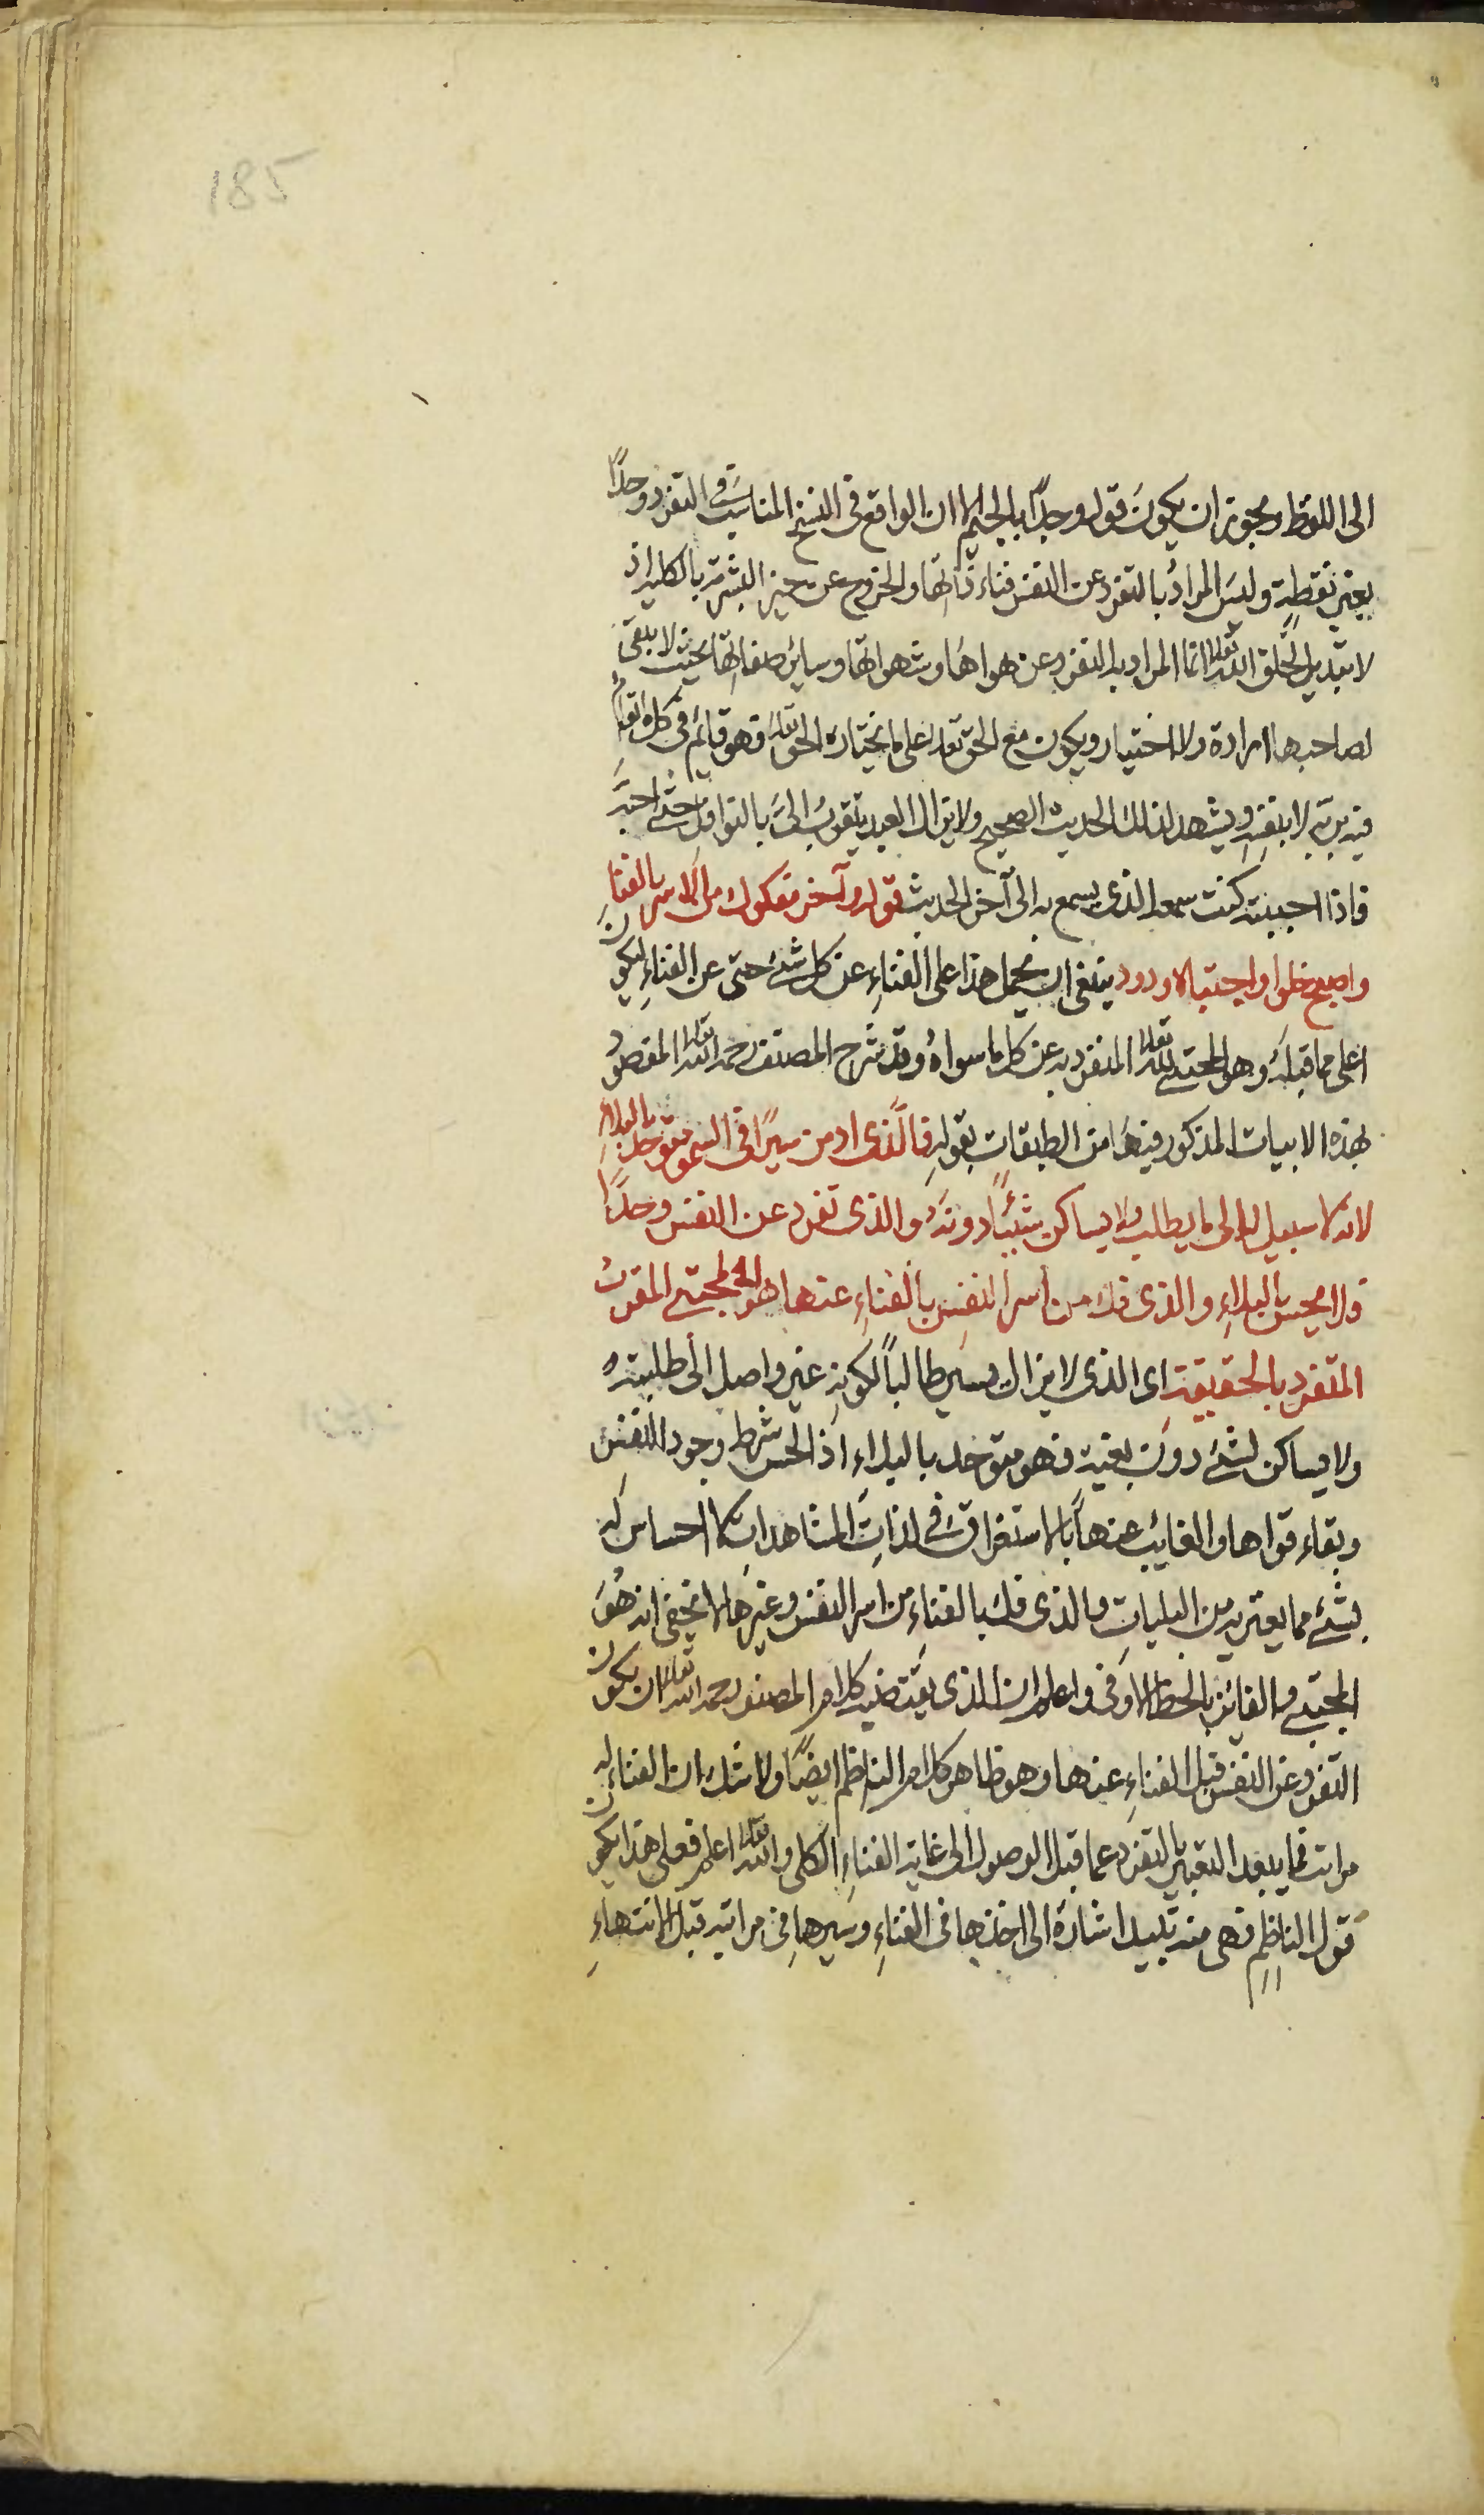 185
الى اللقط ويجوز ان يكون قوله وجدًا بالجيم الا ان الواقع فى النسخ المناسب فى التفرد وحدًا
بغير نقطة وليس المراد بالتفرد عن النفس فناء ذاتها والخروج عن حيز البشرية بالكلية اذ
لا تبديل لخلق الله تعالى انما المراد به التفرد عن هواها وشهواتها وسائر صفاتها بحيث لا يبقى
لصاحبها ارادة ولا اختيار ويكون مع الحق تعالى على ما يختاره الحق تعالى فهو قائم فى كل ما اقامه
فيه بربه لا بنفسه ويشهد لذلك الحديث الصحيح ولا يزال العبد يتقرب الىّ بالنوافل حتى احبه
فاذا احببته كنت سمعه الذى يسمع به الى آخر الحديث قوله وآخر مفكوك من الاسر بالفنا
واصبح خلوا واجتباه ودود ينبغى ان يحمل هذا على الفناء عن كل شئ حتى عن الفناء ليكون
اعلى مما قبله وهو المجتبى لله تعالى المنفرد به عن كل ما سواه وقد شرح المصنف رحمه الله تعالى المقصود
بهذه الابيات المذكور فيها من الطبقات بقوله فالذى ادمن سيرًا فى السمو متوحد بالبلاء
لانه لا سبيل له الى ما يطلب ولا يساكن شيئًا دونه والذى تفرد عن النفس وحدًا
فلا يحس بالبلاء والذى فك من أسر النفس بالفناء عنها هو المجتبى المقرب
المتفرد بالحقيقة اى الذى لا يزال يسير طالبًا لكونه غير واصل الى طلبته
ولا يساكن لشئ دون بغيته فهو متوحد بالبلاء اذ الحس شرط وجود النفس
وبقاء قواها والغايب عنها بالاستغراق فى لذات المشاهدات لا احساس له
بشئ مما يعتريه من البليات والذى فك بالفناء من اسر النفس وغيرها لا يخفى انه هو
المجتبى والفائز بالحظ الاوفى واعلم ان الذى يقتضيه كلام المصنف رحمه الله تعالى ان يكون
التفرد عن النفس قبل الفناء عنها وهو ظاهر كلام الناظم ايضًا ولا شك ان الفناء له
مراتب فما يبعد التعبير بالتفرد عما قبل الوصول الى غاية الفناء الكلى والله تعالى اعلم فعلى هذا يكون
قول الناظم فهى منه تبيد اشارة الى اخذها فى الفناء وسيرها فى مراتبه قبل الانتهاء